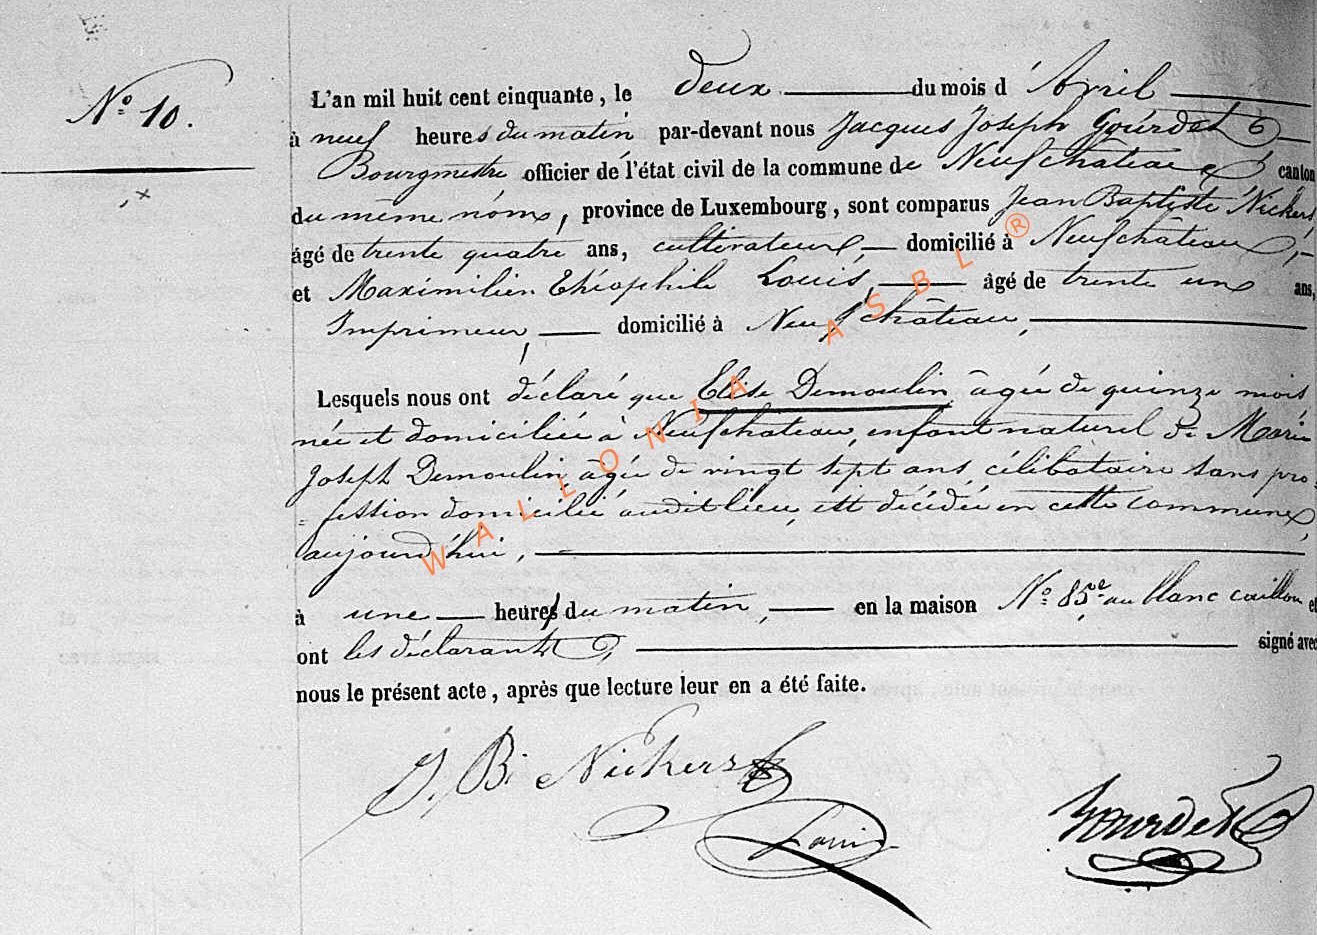 N.º 10.
L'an mil huit cent cinquante, le deux du mois d'Avril
à neuf heures du matin, par-devant nous Jacques Joseph Gourdet
Bourgmestre officier de l'état civil de la commune de Neufchâteau canton
du même nom, province de Luxembourg, sont comparus Jean Baptiste Nickers,
âgé de trente quatre ans, cultivateur, domicilié à Neufchâteau,
et Maximilien Théophile Louis, âgé de trente un ans,
Imprimeur, domicilié à Neufchâteau,
Lesquels nous ont déclaré que Elise Demoulin âgée de quinze mois
née et domiciliée à Neufchateau, enfant naturel de Marie
Joseph Demoulin, âgée de vingt sept ans, célibataire sans pro-
=fession domiciliée audit lieu, est décédée en cette commune,
aujourd'hui,
à une heure du matin, en la maison N.º 85, au blanc caillou et
ont les déclarants signé avec
nous le présent acte, après que lecture leur en a été faite.
J. B. Nickers
Louis
Gourdet
WALLONIA ASBL ®